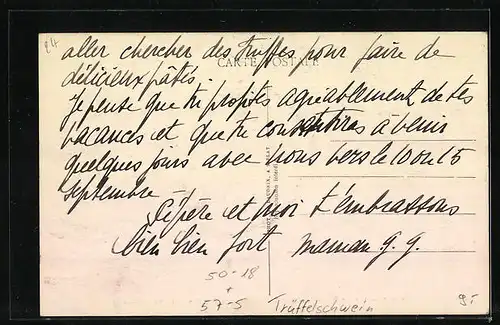 24
aller chercher des truffes pour faire de
CARTE POSTALE
délicieux pâtés.
Je pense que tu profites agréablement de tes
vacances et que tu à venir
quelques jours avec nous vers le 10 ou 15
septembre -
et moi t'embrassons
bien bien fort maman g. g.
50-18
+
57-5
Trüffelschwein
9.-